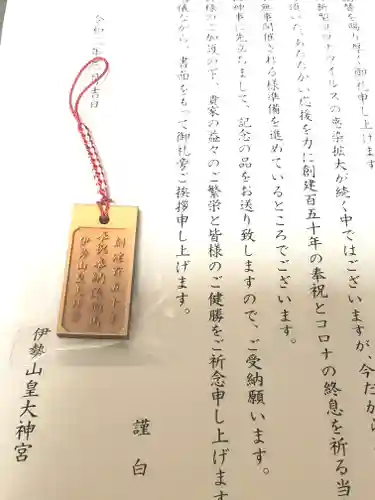 賜り厚く御礼申し上げます
コロナウイルスの感染拡大が続く中ではございますが、今だから
頂いた、あたたかい応援を力に創建百五十年の奉祝とコロナの終息を祈る当
無事開催される様準備を進めているところでございます。
神事に先立ちまして、記念の品をお送り致しますので、ご受納願います。
様のご加護の下、貴家の益々のご繁栄と皆様のご健勝をご祈念申し上げます
儀ながら、書面をもって御礼旁ご挨拶申し上げます。
謹白
令和二年 月吉日
伊勢山皇大神宮
創建百五十年
伊勢山皇大神宮